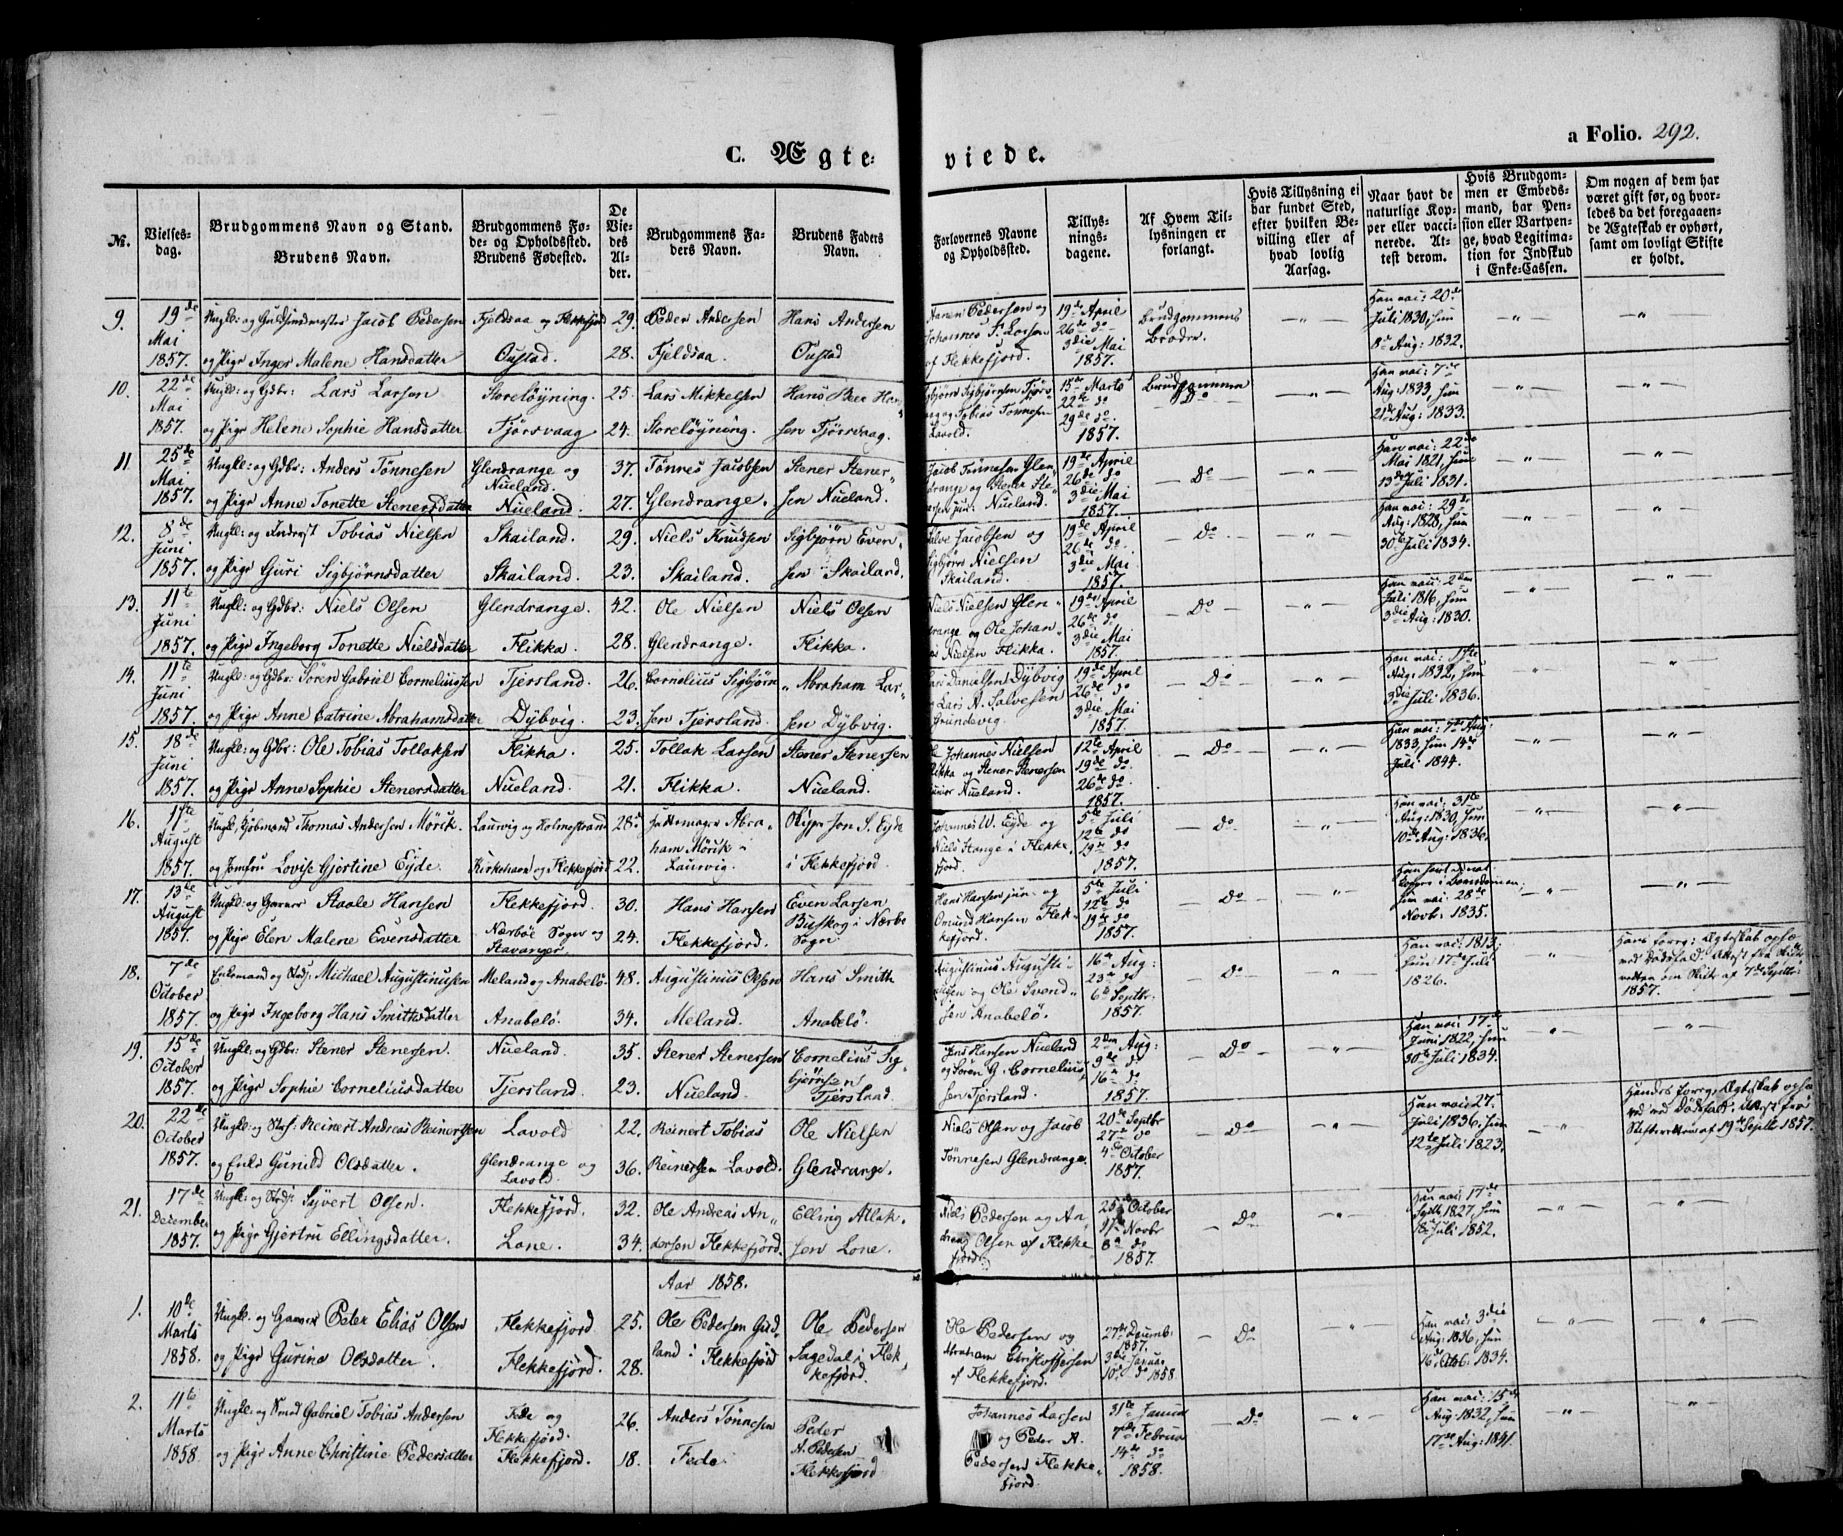 C. Ægte-
viede.
a Folio. 292.
№.
Vielses-
dag.
Brudgommens Navn og Stand.
Brudens Navn.
Brudgommens Fø-
de- og Opholdssted.
Brudens Fødested.
De
Vie-
des
Al-
der.
Brudgommens Fa-
ders Navn.
Brudens Faders
Navn.
Forlovernes Navne
og Opholdssted.
Tillys-
nings-
dagene.
Af Hvem Til-
lysningen er
forlangt.
Hvis Tillysning ei
har fundet Sted,
efter hvilken Be-
villing eller af
hvad lovlig
Aarsag.
Naar havt de
naturlige Kop-
per eller vacci-
nerede. At-
test derom.
Hvis Brudgom-
men er Embeds-
mand, har Pen-
sion eller Vartpen-
ge, hvad Legitima-
tion for Indskud
i Enke-Cassen.
Om nogen af dem har
været gift før, og hvor-
ledes da det foregaaen-
de Ægteskab er ophørt,
samt om lovligt Skifte
er holdt.
9. 19de Mai 1857.
Ungk: og Guldsmedmester Jacob Pedersen
og Pige Inger Malene Hansdatter
Fjeldsaa og Flekkefjord
Oustad.
29.
28.
Peder Andersen
Fjeldsaa
Hans Andersen
Oustad
Pedersen og
Johannes F. Larsen
af Flekkefjord.
19de April
26de do
3die Mai
1857.
Brudgommens
Broder.
Han vac: 20de
Juli 1830, hun
8de Aug: 1832.
10. 22de Mai 1857.
Ungk: og Gdbr: Lars Larsen
og Pige Helene Sophie Hansdatter
Storeløyning.
Fjørsvaag
25.
24.
Lars Mikkelsen
Storeløyning.
Hans Peer Han-
sen Fjørsvaag.
Sigbjørn Sigbjørnsen Fjørs-
vaag og Tobias Tønnesen
Lavold.
15de Marts
22de do
29de do
1857.
Brudgommen
Do
Han vac: 7de
Aug: 1833, hun
21de Aug: 1833.
11. 25de Mai 1857.
Ungk: og Gdbr: Anders Tønnesen
og Pige Anne Tonette Stenersdatter
Glendrange og
Nueland.
Nueland.
37.
27.
Tønnes Jacobsen
Glendrange.
Stener Stener-
sen Nueland.
Jacob Tønnesen Glen-
drange og Stener Ste-
nersen jun: Nueland.
19de April
26de do
3die Mai
1857.
Do
Han vac: 22de
Mai 1821, hun
13de Juli 1831.
12. 8de Juni 1857.
Ungk: og Inderst Tobias Nielsen
og Pige Guri Sigbjørnsdatter
Skailand.
Skailand.
29.
23.
Niels Knudsen
Skailand.
Sigbjørn Even-
sen Skailand.
Salve Jacobsen og
Sigbjørn Nielsen
Skailand.
19de April
26de do
3die Mai
1857.
Do
Han vac: 29de
Aug: 1828, hun
30te Juli 1834.
13. 11te Juni 1857.
Ungk: og Gdbr: Niels Olsen
og Pige Ingeborg Tonette Nielsdatter
Glendrange.
Flikka.
42.
28.
Ole Nielsen
Glendrange.
Niels Olsen
Flikka.
Niels Nielsen Glen-
drange og Ole Johan-
nes Nielsen Flikka.
19de April
26de do
3die Mai
1857.
Do
Han vac: 2den
Juli 1816, hun
3die Aug: 1830.
14. 11te Juni 1857.
Ungk: og Gdbr: Søren Gabriel Corneliussen
og Pige Anne Catrine Abrahamsdatter
Tjersland.
Dybvig.
26.
23.
Cornelius Sigbjørn-
sen Tjersland.
Abraham Lar-
sen Dybvig.
Danielsen Dybvig
og Lars A. Salvesen
Grundevig.
19de April
26de do
3die Mai
1857.
Do
Han vac: 1ste
Aug: 1832, hun
3die Juli 1836.
15. 18de Juni 1857.
Ungk: og Gdbr: Ole Tobias Tollaksen
og Pige Anne Sophie Stenersdatter
Flikka.
Nueland.
25.
21.
Tollak Larsen
Flikka.
Stener Stenersen
Nueland.
Ole Johannes Nielsen
Flikka og Stener Stenersen
junior Nueland.
12te April
19de do
26de do
1857.
Do
Han vac: 7de Aug:
1833, hun 14de
Juli 1844.
16. 1ste August 1857.
Ungk: Kjøbmand Thomas Andersen Mörik.
og Jomfru Lovise Gjertine Eyde.
Laurvig og Holmestrand
Kirkehavn og Flekkefjord
28.
22.
Abra-
ham Mörik i
Laurvig.
Skipr Jon S. Eyde
i Flekkefjord.
Johannes W. Eyde og
Niels Stange i Flekke-
fjord.
5te Juli
12te do
19de do
1857.
Do
Han vac: 31te
Aug: 1830, hun
10de Aug: 1836.
17. 13de August 1857.
Ungk: og Garver Staale Hansen
og Pige Elen Malene Evensdatter
Flekkefjord.
Nærbøe Sogn og
Stavanger.
30.
24.
Hans Hansen
Flekkefjord.
Even Larsen
Buskog i Nærbø
Sogn.
Hans Hansen jun: og
Omund Hansen Flek-
kefjord.
5te Juli
12te do
19de do
1857.
Do
Han havt de nat:
Kopper i Barndommen;
hun vac: 28de
Novb: 1835.
18. 7de October 1857.
Enkemand og Michael Augustinusen
og Pige Ingeborg Hans Smithsdatter
Meland og Anabelø.
Anabelø.
48.
34.
Augustinius Olsen
Meland.
Hans Smith
Anabelø.
Augustinus Augusti-
nusen og Ole Svend-
sen Anabelø.
16de Aug:
23de do
6te Septbr.
1857.
Do
Han vac: 1813;
hun: 17de Juli
1826.
Hans forrg: Ægteskab ophæ-
vet ved Dødsfald. Attest fra Skifte-
retten om Skift af 7de Septbr:
1857.
19. 15de October 1857.
Ungk: og Gdbr: Stener Stenersen.
og Pige Sophie Corneliusdatter
Nueland.
Tjersland.
35.
23.
Stener Stenersen
Nueland.
Cornelius Sig-
bjørnsen
Tjersland.
Jens Hansen Nueland
og Søren G. Cornelius-
sen Tjersland.
2den Aug:
9de do
16de do
1857.
Do
Han vac: 17de
Juni 1822, hun
30te Juli 1834.
20. 22de October 1857.
Ungk: og Reinert Andreas Reinertsen
og Enke Gunild Olsdatter.
Lavold
Glendrange og
Lavold.
22.
36.
Reinert Tobias
Reinertsen Lavold.
Ole Nielsen
Glendrange.
Niels Olsen og Jacob
Tønnesen Glendrange.
20de Septbr
27de do
4de October
1857.
Do
Han vac: 27.
Juli 1836, hun
12te Juli 1823.
Hendes forrg: Ægteskab ophæ-
vet ved Dødsfald. Attest fra
Skifteretten af 19de Septbr 1857.
21. 17de December 1857.
Ungk: og Syvert Olsen.
og Pige Gjertru Ellingsdatter.
Flekkefjord.
Lone.
32.
34.
Ole Andreas An-
dersen Flekkefjord.
Elling Atlak-
sen Lone.
Niels Pedersen og An-
dreas Olsen af Flekke-
fjord.
25de October
1ste Novbr
8de do
1857.
Do
Han vac: 17de
Septb 1827, hun
18de Juli 1852.
Aar 1858.
1. 10de Marts 1858.
Ungk: og Garver Peter Elias Olsen
og Pige Gurine Olsdatter.
Flekkefjord
Flekkefjord.
25.
28.
Ole Pedersen Gud-
land i Flekkefjord
Ole Pedersen
Sagedal i Flek-
kefjord.
Ole Pedersen og
Abraham Christoffersen
af Flekkefjord.
27de Decemb:
1857.
3die Januar
10de do 1858.
Do
Han vac: 3die
Aug: 1836, hun
16de Octb: 1834.
2. 11te Marts 1858.
Ungk: og Smed Gabriel Tobias Andersen
og Pige Anne Christine Pedersdatter
Fede og
Flekkefjord.
Flekkefjord.
26.
18.
Anders Tønnesen
Fede.
Peder
A. Pedersen
Flekkefjord
Johannes Larsen
og Peder A.
Pedersen Flekke-
fjord.
31te Januar
7de Februar
14de do
1858.
Do
Han vac: 15de
Aug: 1832, hun
17de Aug: 1841.